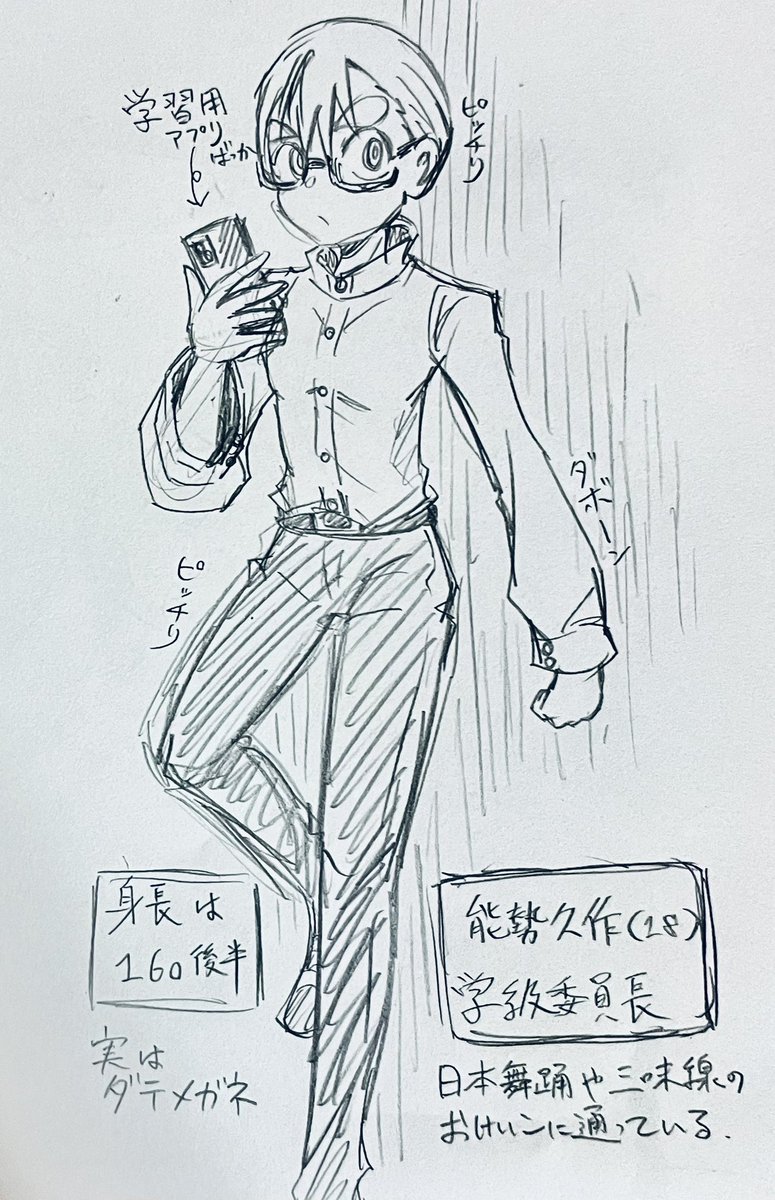 学習用
アプリ
ばっか
ピッチリ
ダボーン
ピッチリ
身長は
160後半
実は
ダテメガネ
能勢久作(18)
学級委員長
日本舞踊や三味線の
おけいこに通っている.